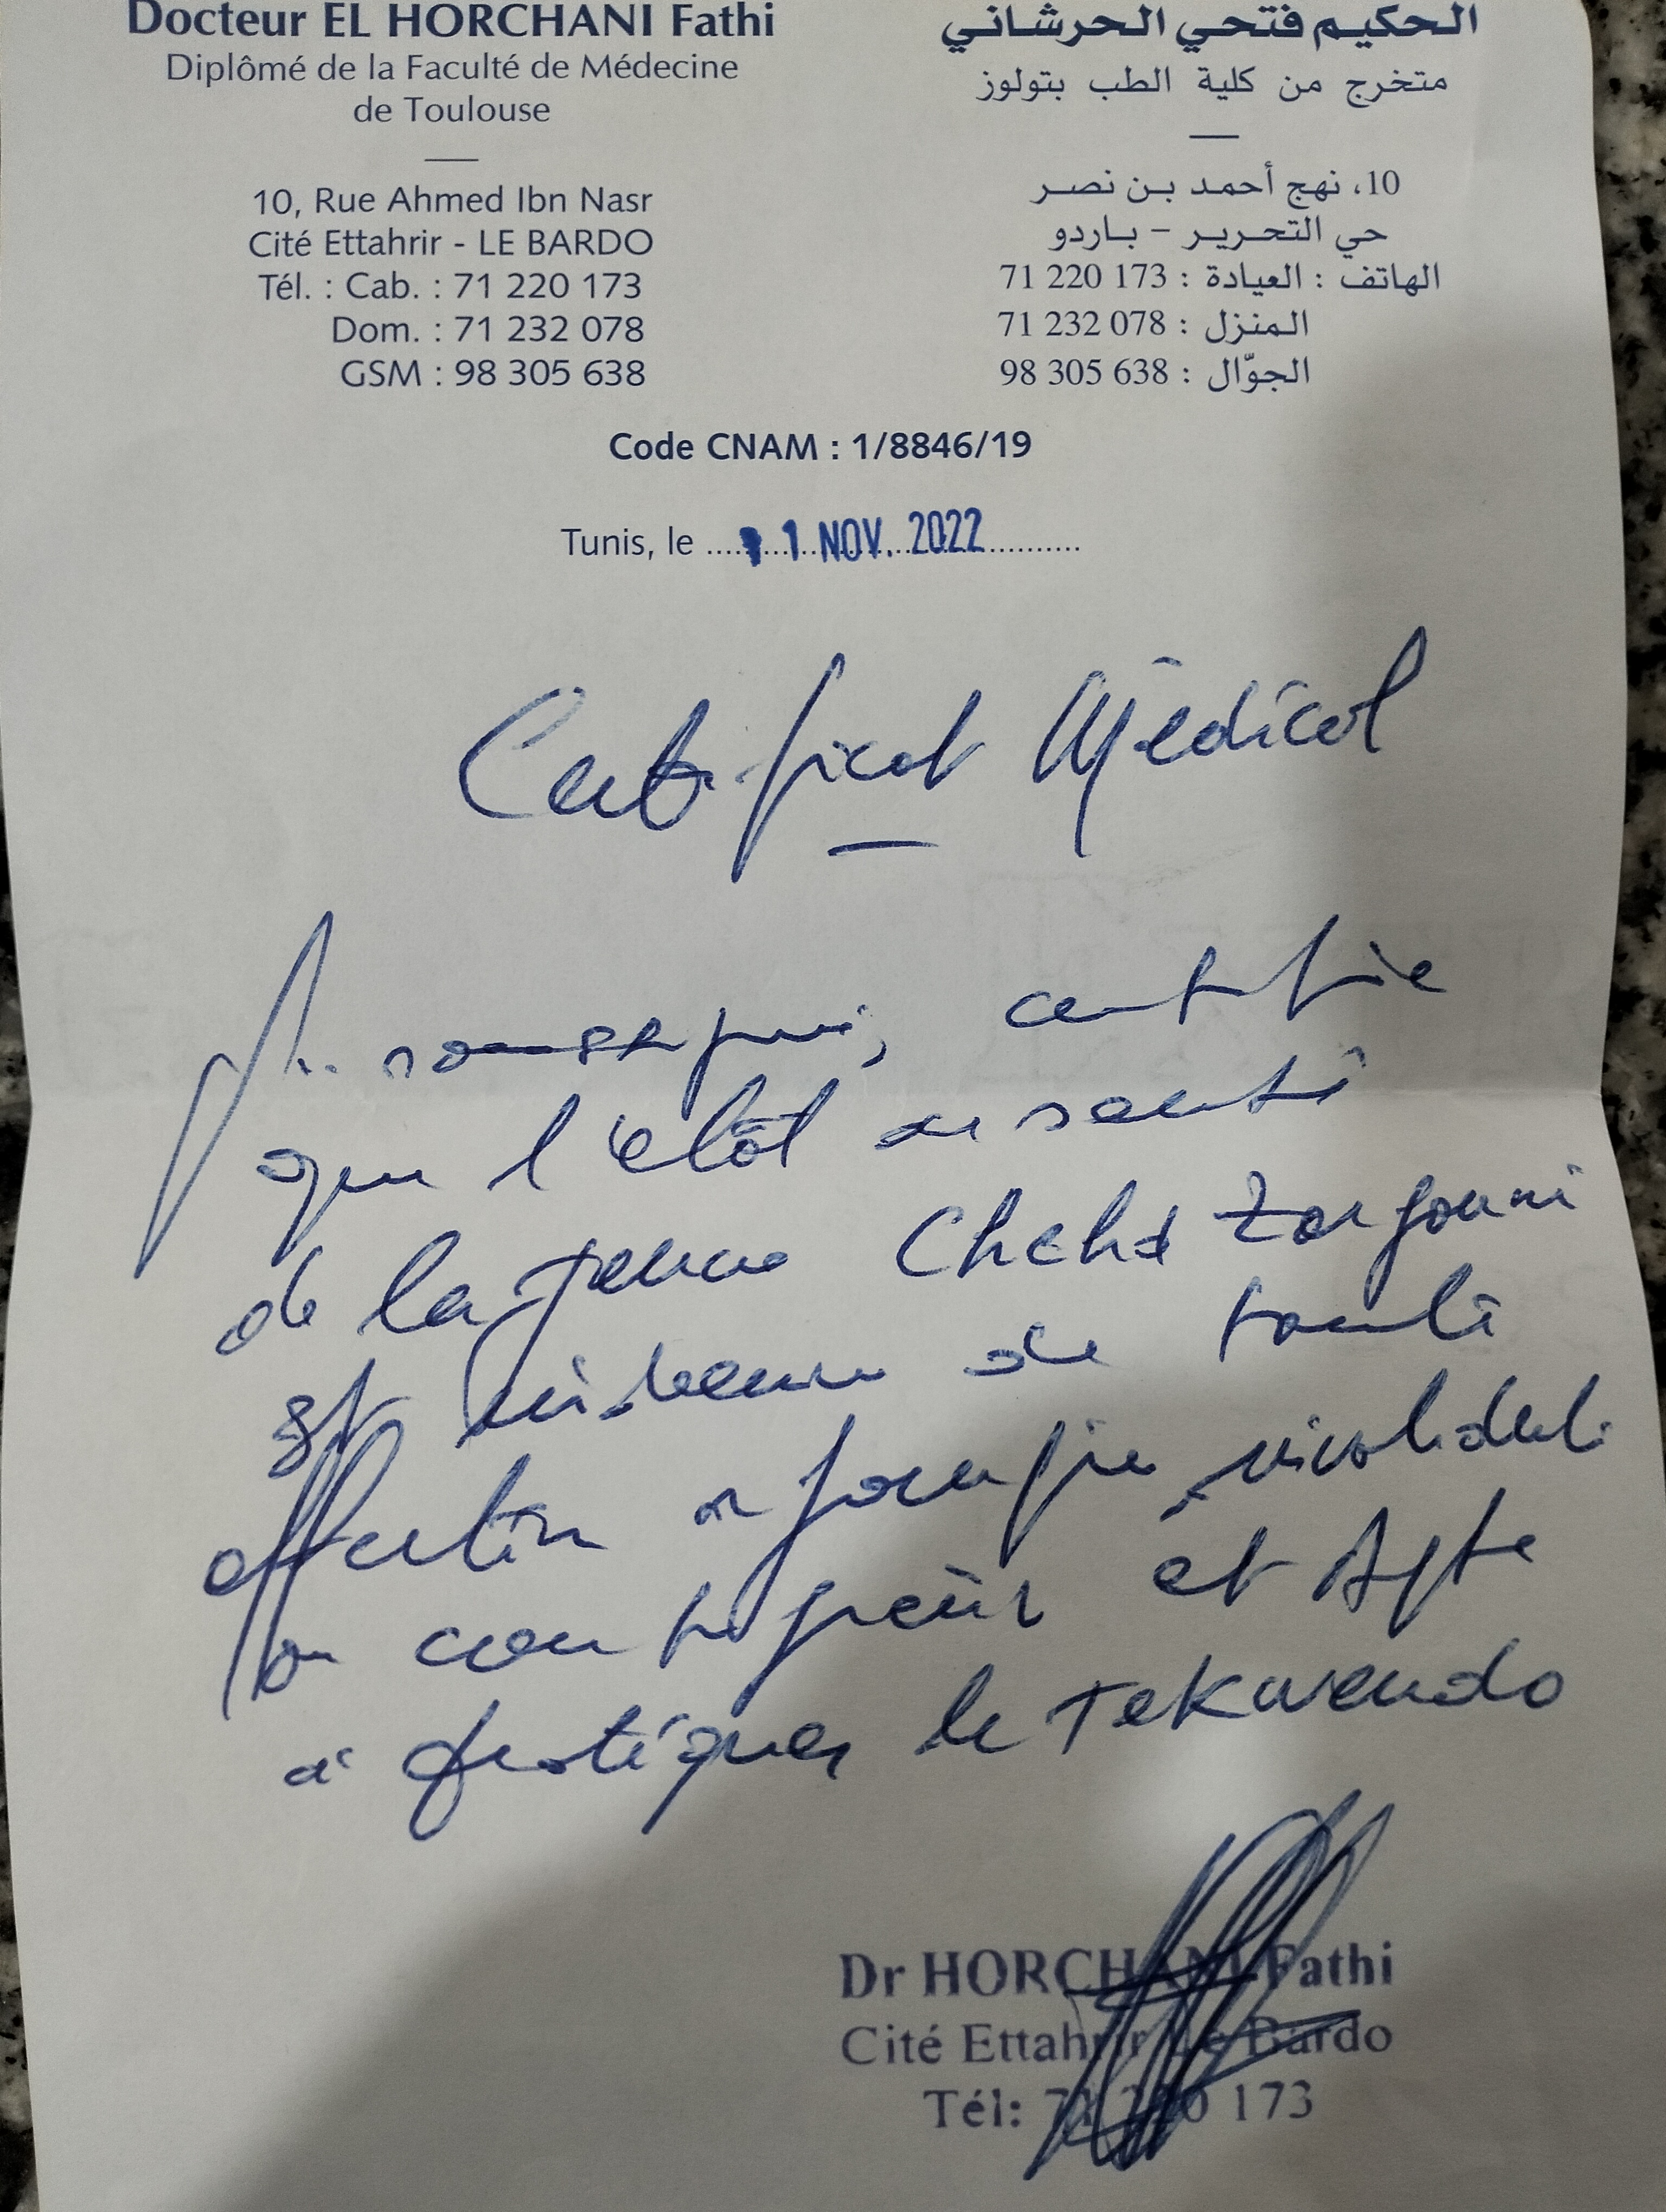 Docteur EL HORCHANI Fathi
Diplômé de la Faculté de Médecine
de Toulouse
10, Rue Ahmed Ibn Nasr
Cité Ettahrir - LE BARDO
Tél. : Cab. : 71 220 173
Dom. : 71 232 078
GSM : 98 305 638
الحكيم فتحي الحرشاني
متخرج من كلية الطب بتولوز
10، نهج أحمد بن نصر
حي التحرير - باردو
الهاتف : العيادة : 173 220 71
المنزل : 078 232 71
الجوّال : 638 305 98
Code CNAM : 1/8846/19
Tunis, le 1 NOV. 2022
Certificat Médical
Je soussigné, certifie
que l'état de santé
de la jeune Chahd Zargouni
est indemne de toute
affection
ou contagieuse et Apte
à pratiquer le Tekwendo
Dr HORCHANI Fathi
Cité Ettahrir Le Bardo
Tél: 71 220 173